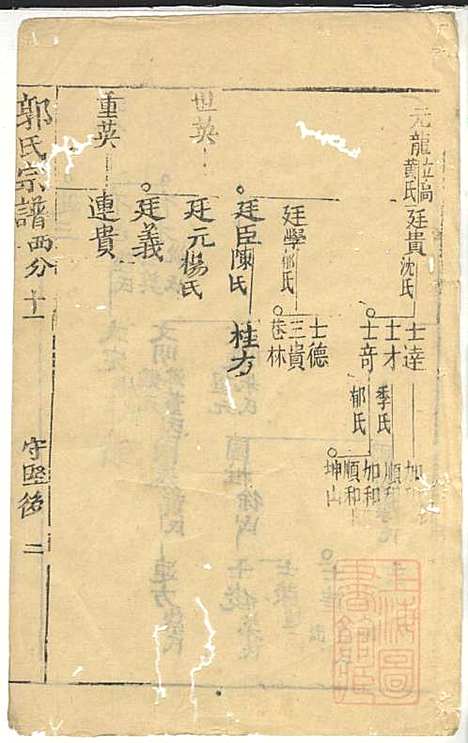 元龍
黄氏
廷貴
沈氏
士達
士才
季氏
順和
士奇
郁氏
加和
順和
坤山
廷學
郁氏
士德
三貴
巷林
世英
廷臣陳氏
桂方
廷元楊氏
廷義
重英
連貴
郭氏宗譜
西分十一
守堅後
二
上海圖書館藏